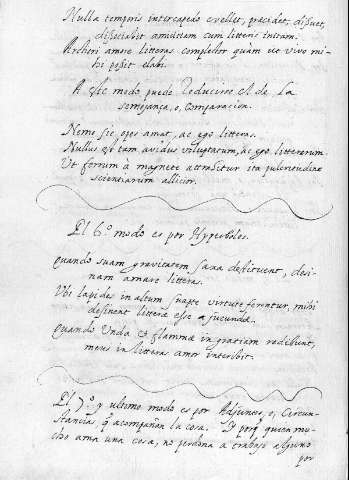 Nulla temporis intercapedo evellet, præcidet, disuet,
dissociabit amicitiam cum litteris initam.
Archiori amore litteras complector quam ut vivo mi-
hi possit elabi.
A este modo puede Reducirse el de La
semejança, o, comparacion.
Nemo sic opes amat, ac ego litteras.
Nullus est tam avidus voluptatum, ac ego litterarum.
Ut ferrum à magnete attrahitur ita pulcritudine
scientiarum allicior.
El 6.º modo es por Hyperboles.
Quando suam gravitatem saxa destituent, desi-
nam amare litteras.
Ubi lapides in altum suapte virtute ferentur, mihi
desinent litteræ esse jucundæ.
Quando Unda et flamma in gratiam redibunt,
meus in litteras amor interibit.
El 7.º y ultimo modo es por Adjuntos, o, Circun-
stancias q acompañan la cosa. Y porq quien mu-
cho ama una cosa, no perdona a trabajo alguno
por